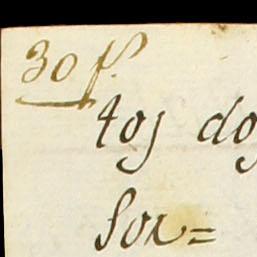 30 f.
tos dos
Sor=